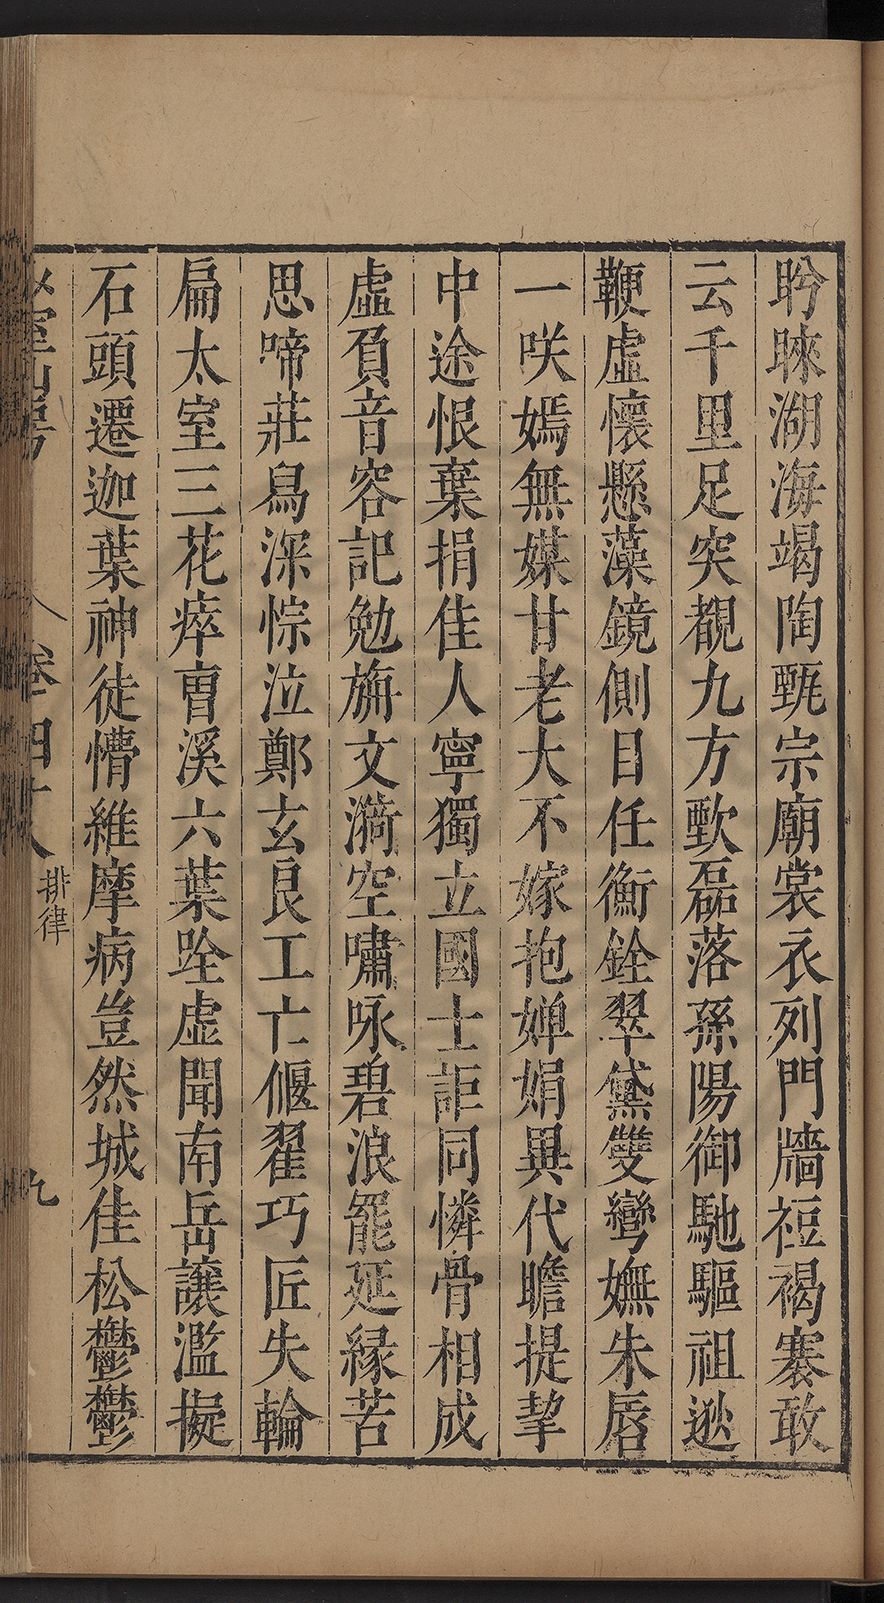 盻睞湖海竭陶甄宗廟裳衣列門牆裋褐褰敢
云千里足突覩九方歅磊落孫陽御馳驅祖逖
鞭虛懷懸藻鏡側目任衡銓翠黛雙彎嫵朱唇
一咲嫣無媒甘老大不嫁抱嬋娟異代瞻提挈
中途恨棄捐佳人寧獨立國士詎同憐骨相成
虛負音容記勉旃文漪空嘯咏碧浪罷延緣苦
思啼莊舄深悰泣鄭玄良工亡偃翟巧匠失輪
扁太室三花瘁曺溪六葉跧虛聞南岳讓濫擬
石頭遷迦葉神徒懵維摩病豈然城隹松鬱鬱
室山房 卷四十八 排律 九